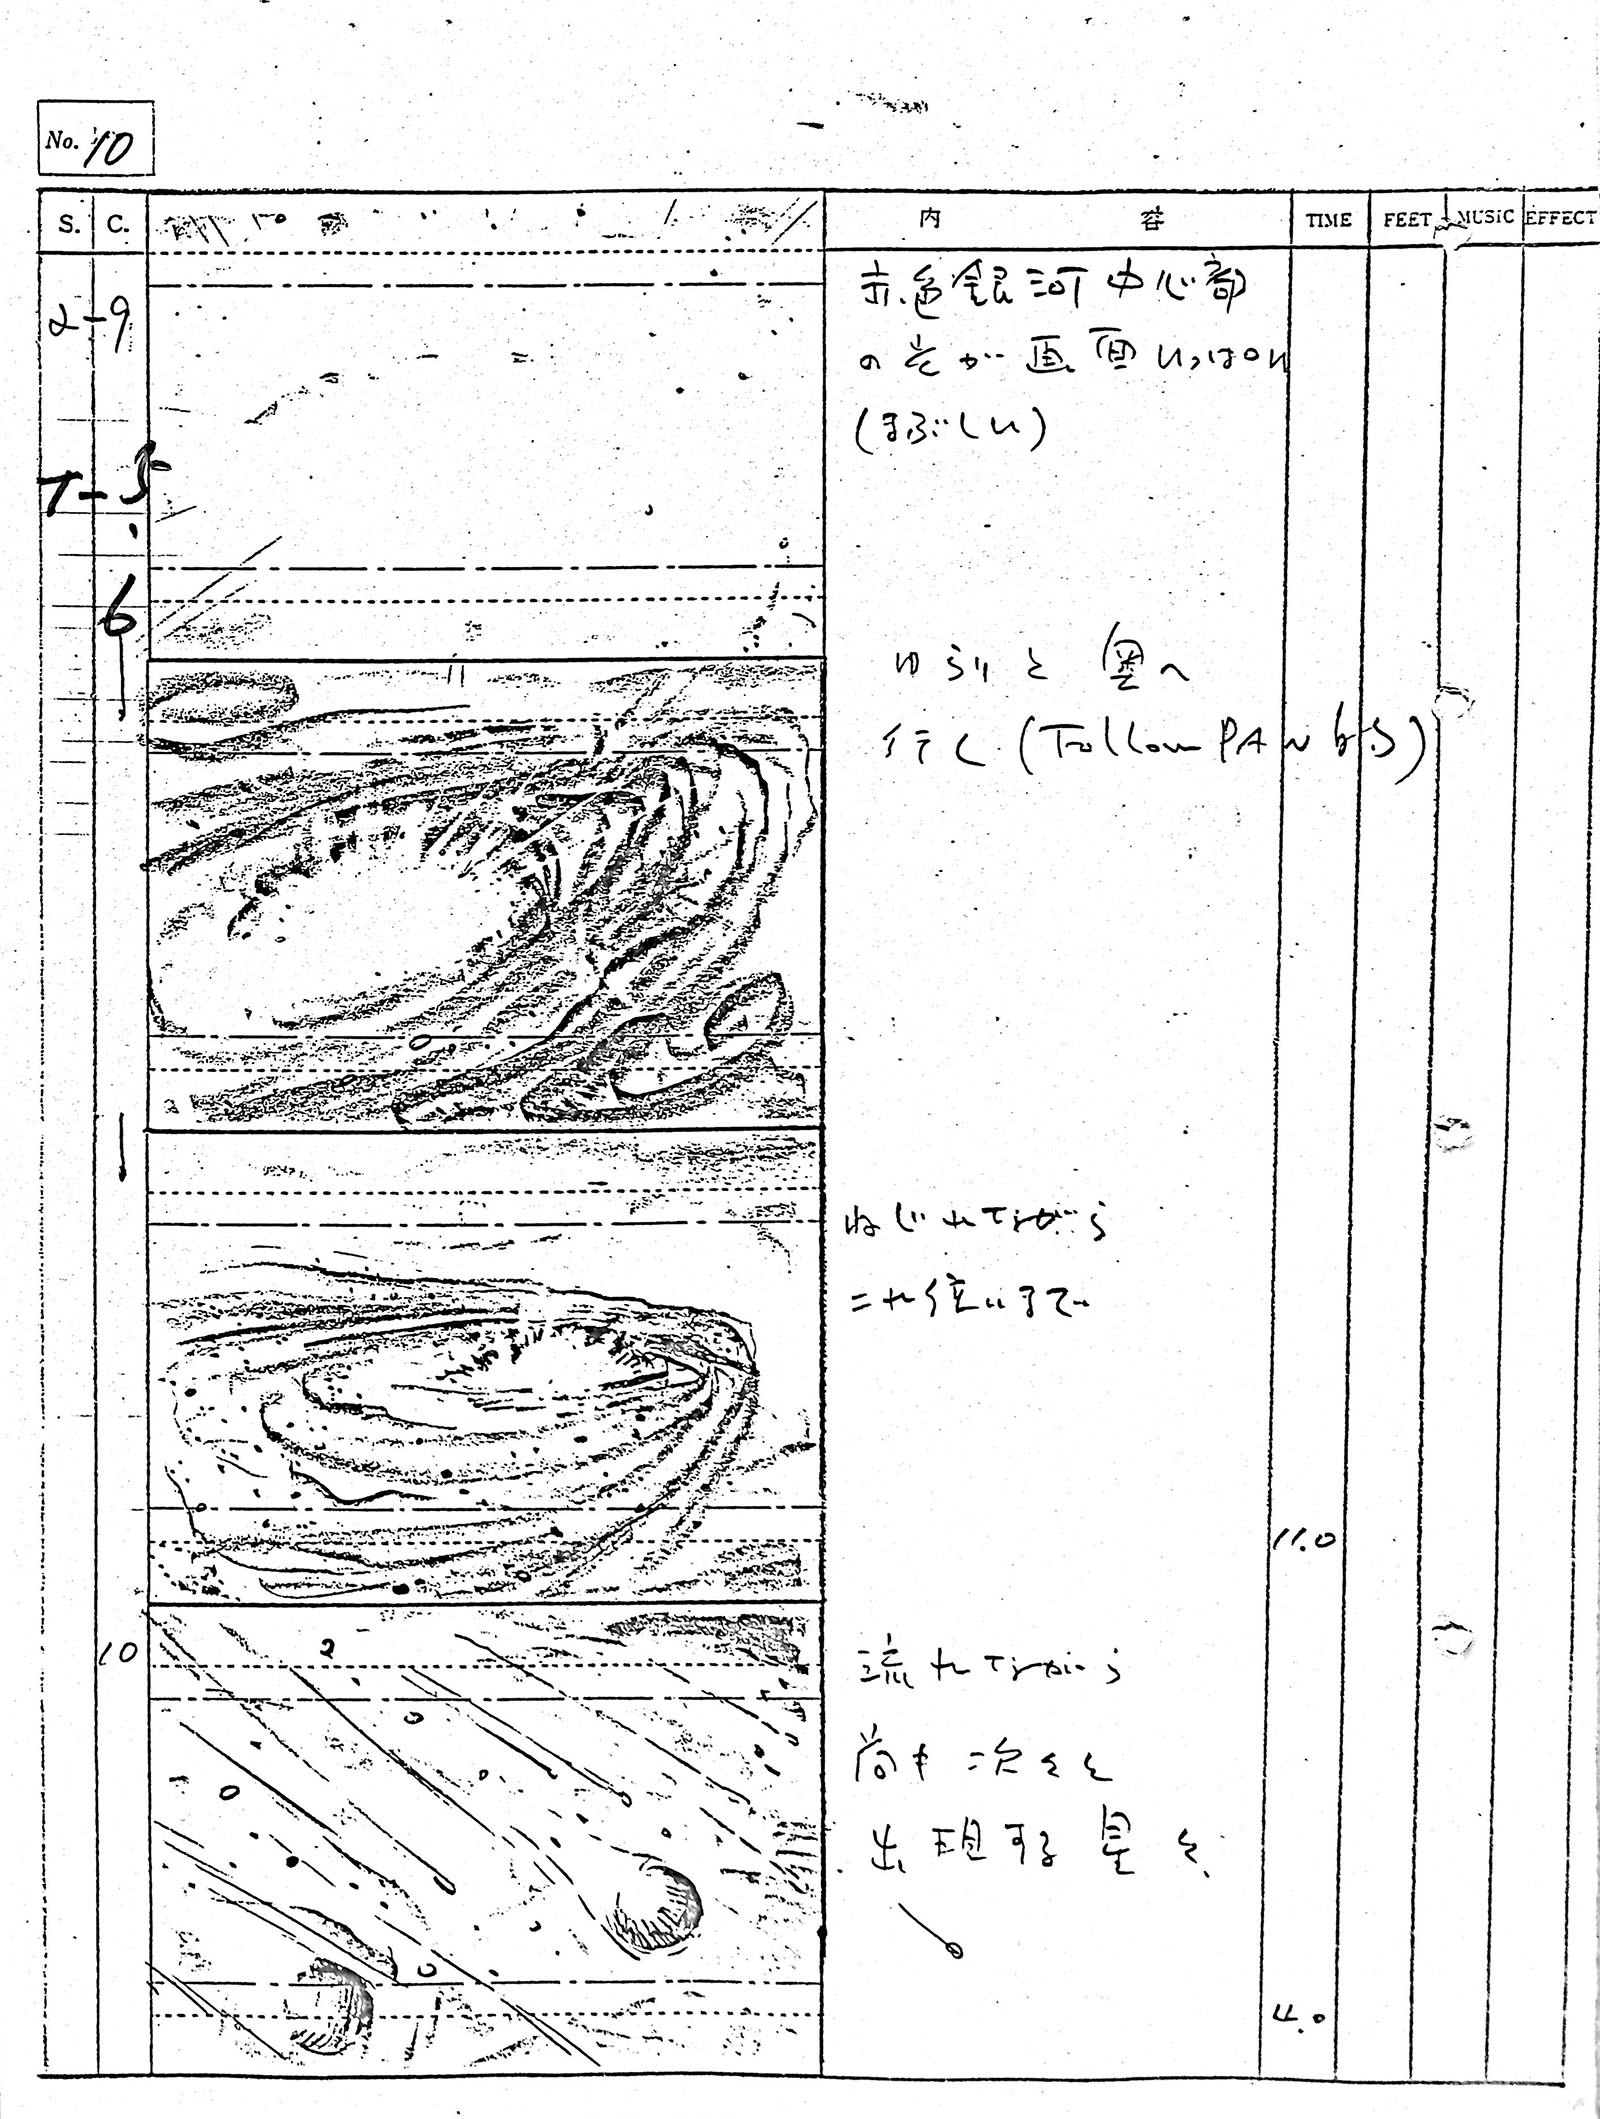 No. 10
S. C. 内容 TIME FEET MUSIC EFFECT
2-9
赤色銀河中心部
の光が画面いっぱい
(まぶしい)
6
ゆらりと奥へ
行く(Follow PAN b.s)
ねじれながら
これ位いまで
11.0
10
流れながら
尚も次々と
出現する星々
4.0